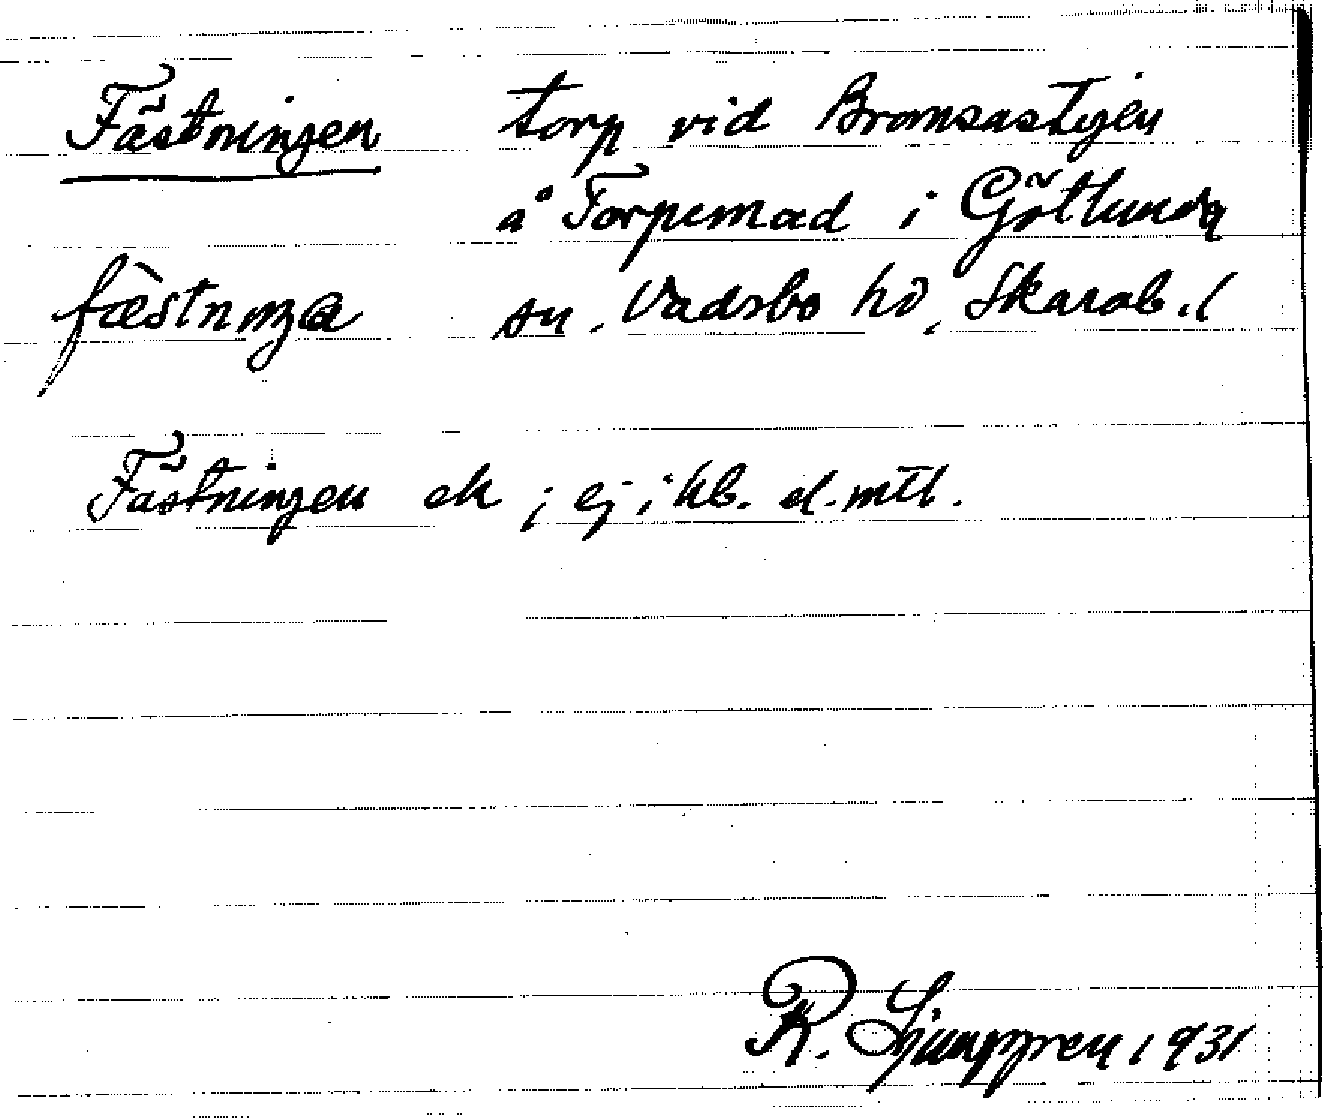 Fästningen torp vid Bromsastijen
å Torpemad i Götlunda
fæstnıŋa sn. Vadsbo hd, Skarab. l
Fästningen ek ; ej i kb. el. mtl.
R. Ljunggren 1931